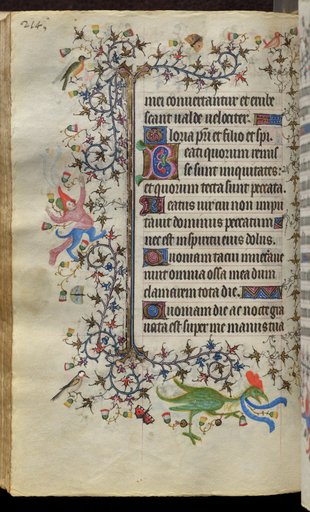 214
mei convertantur et erube
scant valde velociter.
Gloria pri et filio et spi.
Beati quorum remis
se sunt iniquitates:
et quorum tecta sunt peccata.
Beatus vir cui non impu
tavit dominus peccatum:
nec est in spiritu eius dolus.
Quoniam tacui invetera
verunt omnia ossa mea dum
clamarem tota die.
Quoniam die ac nocte gra
vata est super me manus tua